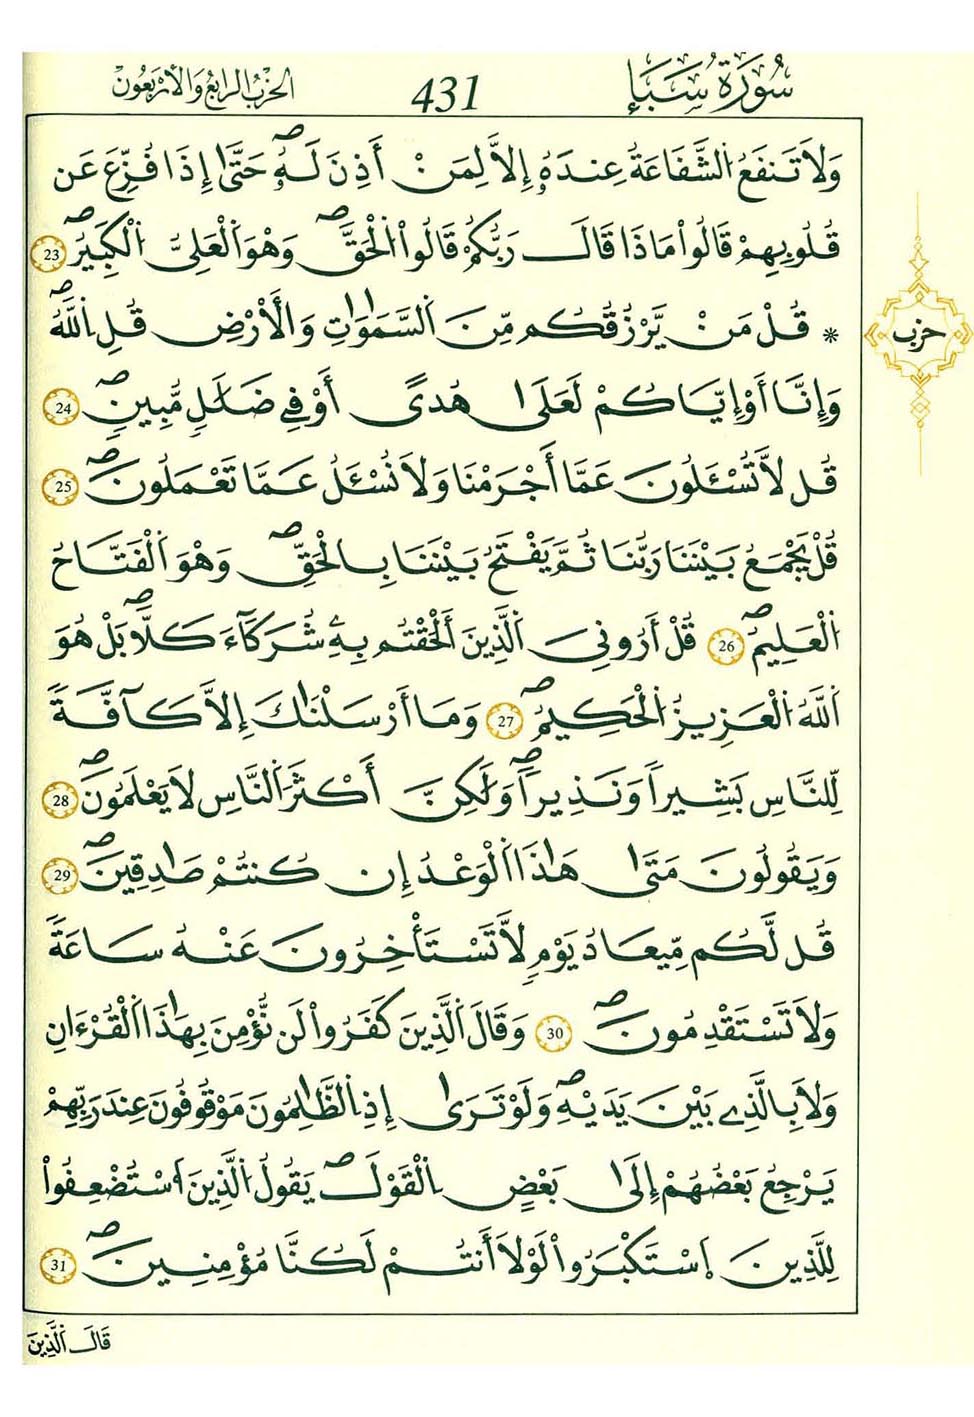 سُورَةُ سَبَإٍ
431
الحِزْبُ الرَّابِعُ وَالْأَرْبَعُونَ
وَلَا تَنفَعُ الشَّفَاعَةُ عِندَهُۥ إِلَّا لِمَنْ أَذِنَ لَهُۥ حَتَّىٰ إِذَا فُزِّعَ عَن
قُلُوبِهِمْ قَالُواْ مَاذَا قَالَ رَبُّكُمْ قَالُواْ الْحَقَّ وَهْوَ الْعَلِيُّ الْكَبِيرُ 23
* قُلْ مَنْ يَّرْزُقُكُم مِّنَ السَّمَٰوَٰتِ وَالْأَرْضِ قُلِ اللَّهُ
وَإِنَّا أَوْ إِيَّاكُمْ لَعَلَىٰ هُدىً أَوْ فِے ضَلَٰلٍ مُّبِينٍ 24
قُل لَّا تُسْـَٔلُونَ عَمَّا أَجْرَمْنَا وَلَا نُسْـَٔلُ عَمَّا تَعْمَلُونَ 25
قُلْ يَجْمَعُ بَيْنَنَا رَبُّنَا ثُمَّ يَفْتَحُ بَيْنَنَا بِالْحَقِّ وَهْوَ الْفَتَّاحُ
الْعَلِيمُ 26 قُلْ أَرُونِيَ الَّذِينَ أَلْحَقْتُم بِهِۦ شُرَكَآءَ كَلَّا بَلْ هُوَ
اللَّهُ الْعَزِيزُ الْحَكِيمُ 27 وَمَا أَرْسَلْنَٰكَ إِلَّا كَآفَّةً
لِّلنَّاسِ بَشِيراً وَنَذِيراً وَلَٰكِنَّ أَكْثَرَ النَّاسِ لَا يَعْلَمُونَ 28
وَيَقُولُونَ مَتَىٰ هَٰذَا الْوَعْدُ إِن كُنتُمْ صَٰدِقِينَ 29
قُل لَّكُم مِّيعَادُ يَوْمٍ لَّا تَسْتَأْخِرُونَ عَنْهُ سَاعَةً
وَلَا تَسْتَقْدِمُونَ 30 وَقَالَ الَّذِينَ كَفَرُواْ لَن نُّؤْمِنَ بِهَٰذَا الْقُرْءَانِ
وَلَا بِالَّذِے بَيْنَ يَدَيْهِ وَلَوْ تَرَىٰ إِذِ الظَّٰلِمُونَ مَوْقُوفُونَ عِندَ رَبِّهِمْ
يَرْجِعُ بَعْضُهُمْ إِلَىٰ بَعْضٍ الْقَوْلَ يَقُولُ الَّذِينَ اَسْتُضْعِفُواْ
لِلَّذِينَ اَسْتَكْبَرُواْ لَوْلَا أَنتُمْ لَكُنَّا مُؤْمِنِينَ 31
حزب
قَالَ الَّذِينَ